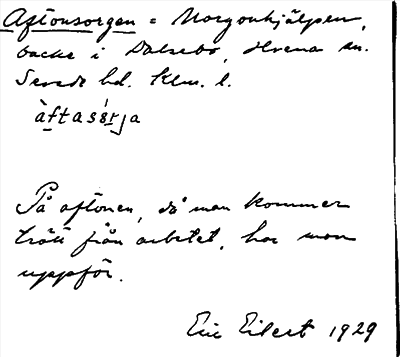 Aftonsorgen = Morgonhjälpen,
backe i Dalsebo, Hvena sn.
Sevede hd. Klm. l.
àftasśrja
På aftonen, då man kommer
trött från arbetet, har man
uppför.
Eric Eilert 1929